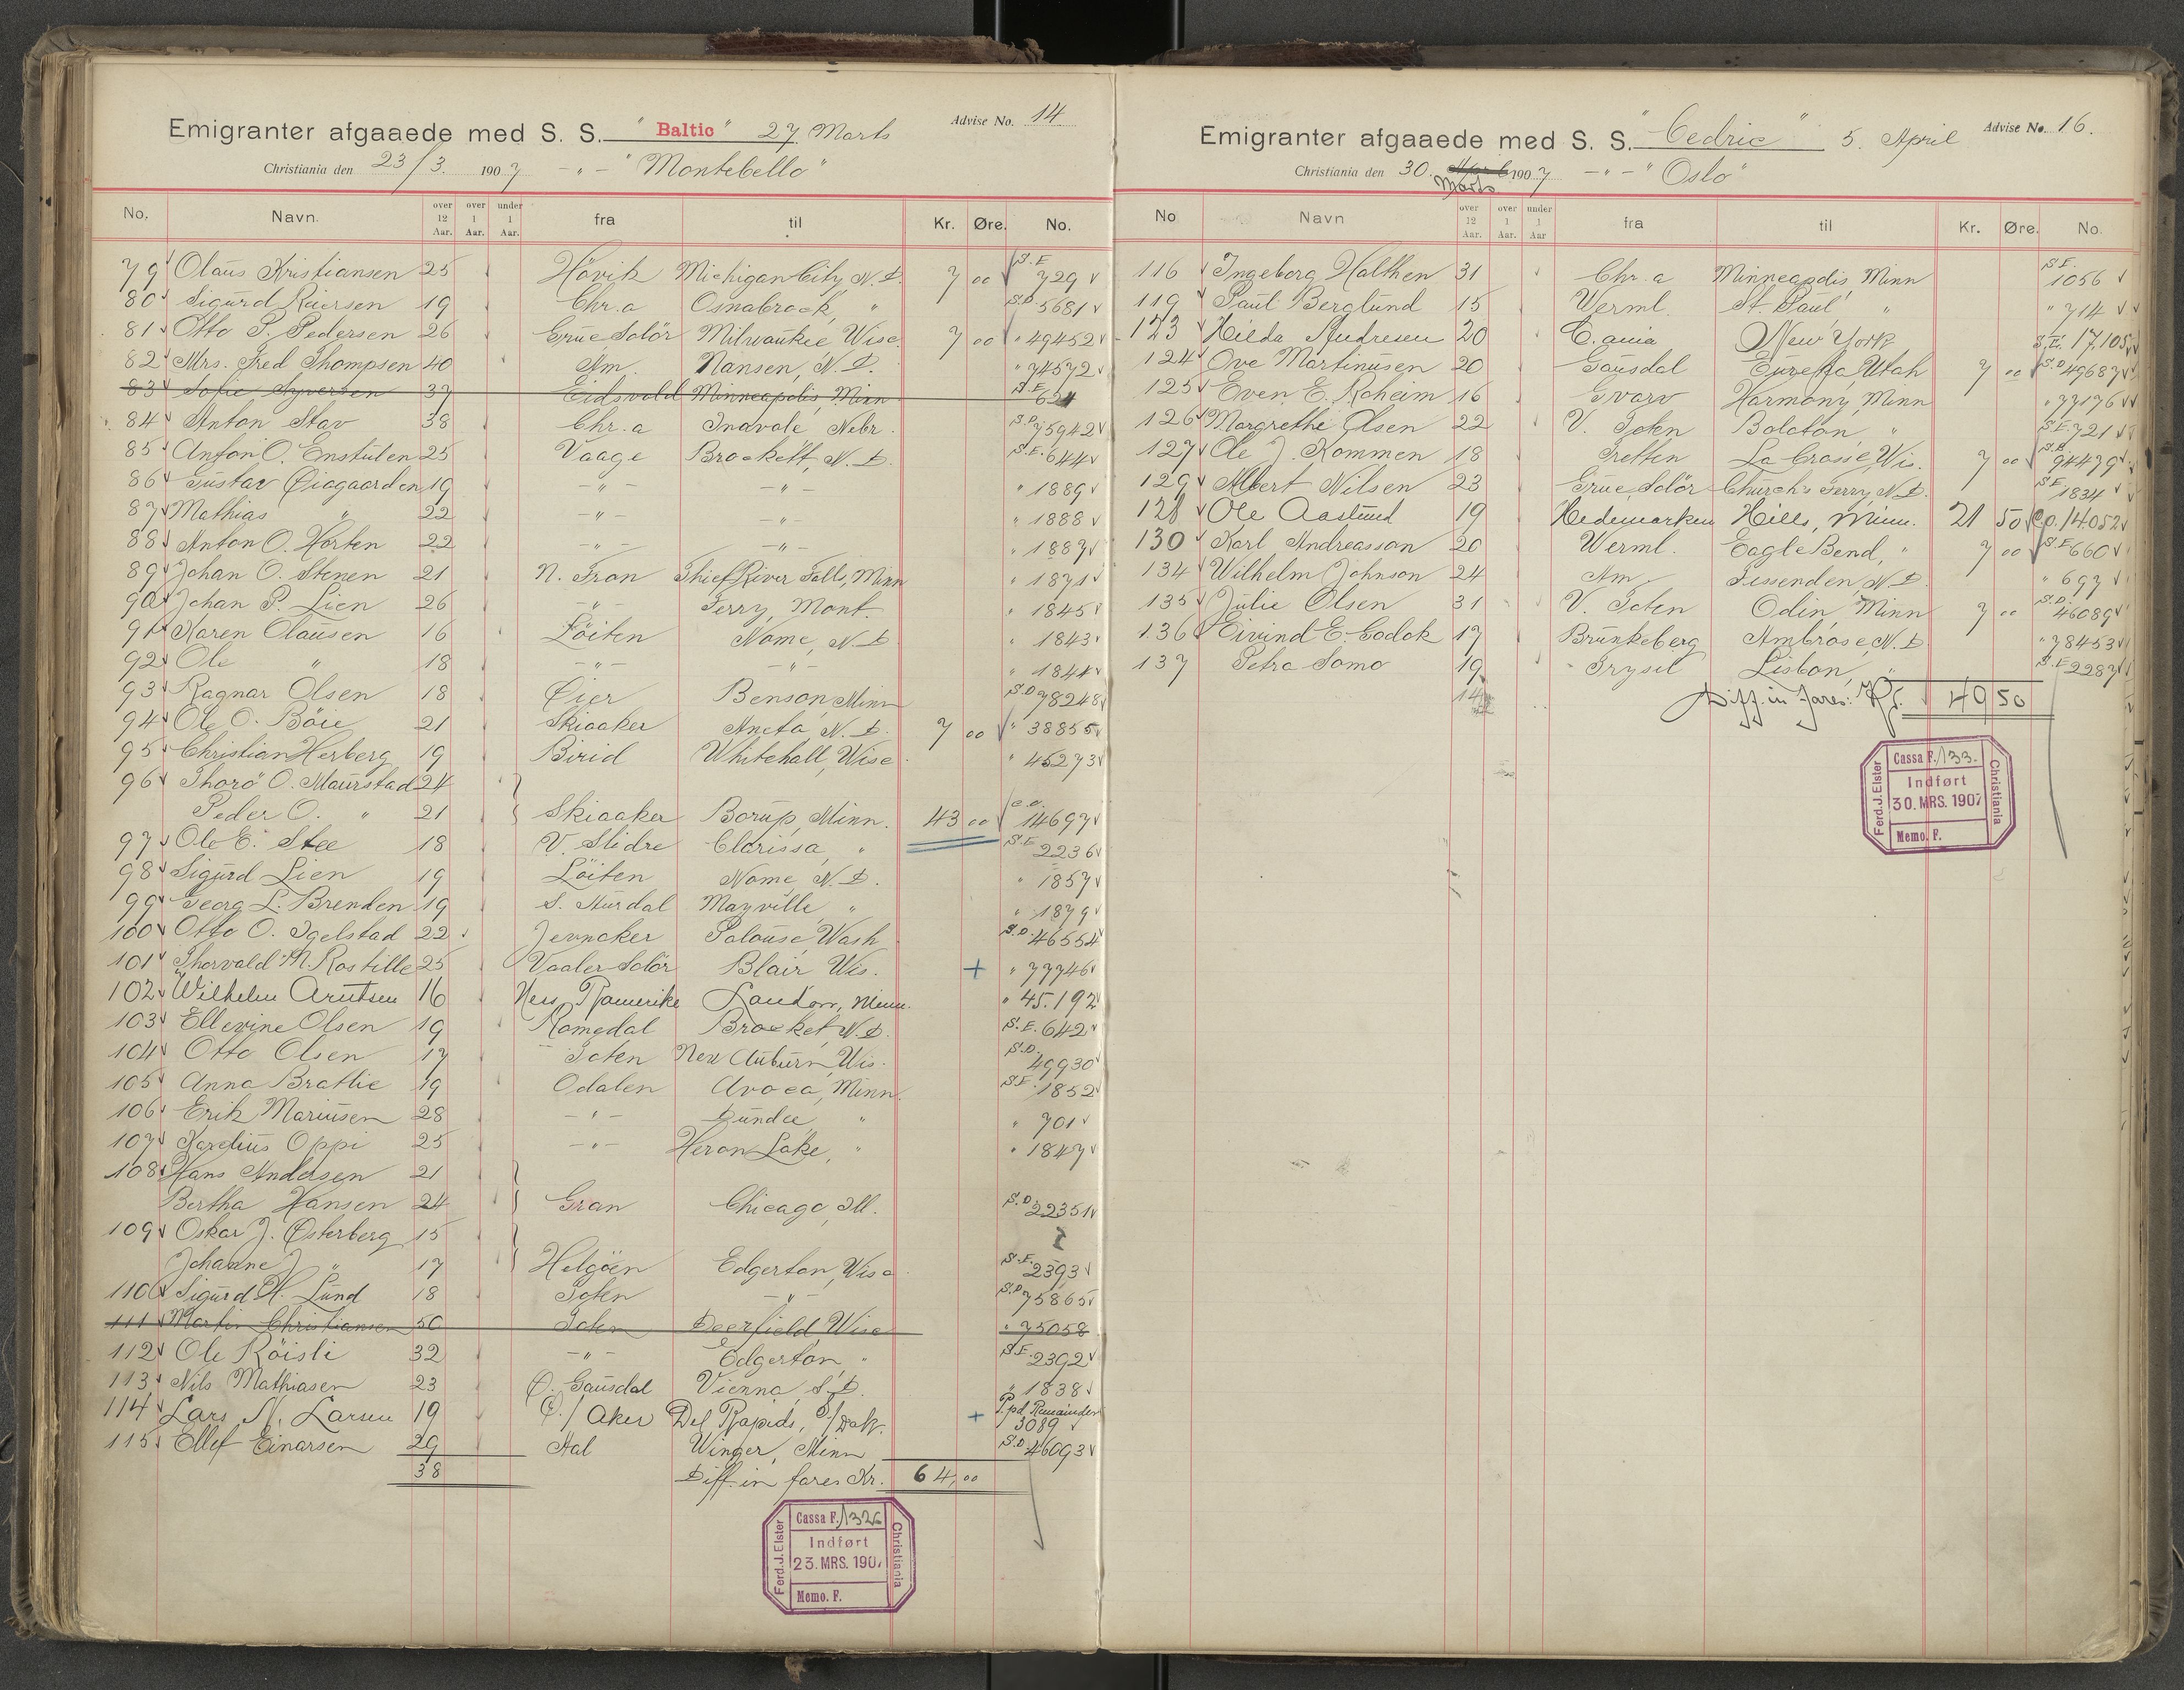 Emigranter afgaaede med S. S. "Baltic" 27 Marts Advise No. 14
Christiania den 23/3. 1907 - " - "Montebello"
No. Navn. over 12 Aar. over 1 Aar. under 1 Aar. fra til Kr. Øre. No.
79 Olaus Kristiansen 25 Hövik Michigan City, N. D. 7 00 S.E. 729
80 Sigurd Reiersen 19 Chr.a Osnabrock, " S.D. 5681
81 Otto P. Pedersen 26 Grue Solör Milwaukie Wisc. 7 00 " 49452
82 Mrs. Fred Thompsen 40 Am. Nansen, N. D. " 74572
83 Sofie Syversen 37 Eidsvold Minneapolis, Minn S.E. 621
84 Anton Stav 38 Chr.a Inavale, Nebr. S.D. 75942
85 Anton O. Enstuten 25 Vaage Brockett, N. D. S.E. 644
86 Gustav Øiagaarden 19 - " - - " - " 1889
87 Mathias " 22 - " - - " - " 1888
88 Anton O. Horten 22 - " - - " - " 1887
89 Johan O. Stenen 21 N. Fron Thief River Falls, Minn " 1871
90 Johan P. Lien 26 - " - Terry, Mont. " 1845
91 Karen Olausen 16 Löiten Nome, N. D. " 1843
92 Ole " 18 - " - - " - " 1844
93 Ragnar Olsen 18 Øier Benson, Minn S.D. 78248
94 Ole O. Böie 21 Skiaaker Aneta, N. D. 7 00 " 38855
95 Christian Herberg 19 Birid Whitehall, Wisc. " 45273
96 Thorö O. Maurstad 24
Peder O. " 21 Skiaaker Borup, Minn. 43 00 C.O. 14697
97 Ole E. Stee 18 V. Slidre Clarissa, " S.E. 2236
98 Sigurd Lien 19 Löiten Nome, N. D. " 1857
99 Georg L. Brenden 19 S. Aurdal Mayville, " " 1879
100 Otto O. Igelstad 22 Jevnaker Palouse, Wash S.D. 46554
101 Thorvald M. Rostille 25 Vaaler Solör Blair, Wis. + " 77746
102 Wilhelm Arntsen 16 Nes, Romerike London, Minn. " 45.192
103 Ellevine Olsen 19 Romedal Brocket, N. D. S.E. 642
104 Otto Olsen 17 Toten New Auburn, Wis. S.D. 49930
105 Anna Bratlie 19 Odalen Avoca, Minn. S.E. 1852
106 Erik Mariusen 28 - " - Dundee, " " 701
107 Karelius Oppi 25 - " - Heron Lake, " " 1847
108 Hans Andersen 21
Bertha Hansen 24 Gran Chicago, Ill. S.D. 22351
109 Oskar J. Østerberg 15
Johanne J. " 17 Helgöen Edgerton, Wisc. S.E. 2393
110 Sigurd H. Lund 18 Toten - " - S.D. 75865
111 Martin Christiansen 50 Toten Deerfield, Wisc " 75058
112 Ole Röisli 32 - " - Edgerton, " S.E. 2392
113 Nils Mathiasen 23 Ø. Gausdal Vienna, S. D. " 1838
114 Lars N. Larsen 19 Ø./Aker Del Rapids, S/Dak. + P.pd Remainder 3089
115 Ellef Einarsen 29 Aal Winger, Minn S.D. 46093
38 Diff. in fares Kr. 64,00
Ferd. J. Elster Christiania
Cassa F. 1326
Indført
23. MRS. 1907
Memo. F.
Emigranter afgaaede med S. S. "Cedric" 5. April Advise No. 16.
Christiania den 30. Marts 1907 - " - "Oslo"
No Navn over 12 Aar. over 1 Aar. under 1 Aar fra til Kr. Øre. No.
116 Ingeborg Halthen 31 Chr.a Minneapolis, Minn S.E. 1056
119 Paul Berglund 15 Verml. St. Paul, " " 714
123 Hilda Andresen 20 C.ania New York S.E. 17.105
124 Ove Martinusen 20 Gausdal Eureka, Utah 7 00 S.D. 49687
125 Even E. Roheim 16 Gvarv Harmony, Minn " 77176
126 Margrethe Olsen 22 V. Toten Bolaton, " S.E. 721
127 Ole J. Kommen 18 Tretten La Crosse, Wis. 7 00 S.D. 94479
129 Albert Nilsen 23 Grue, Solör Church's Ferry, N. D. S.E. 1834
128 Ole Aaslund 19 Hedemarken Hills, Minn. 21 50 C.O. 14.052
130 Karl Andreasson 20 Werml. Eagle Bend, " 7 00 S.E. 660
134 Wilhelm Johnson 24 Am. Fessenden, N. D. " 697
135 Julie Olsen 31 V. Toten Odin, Minn 7 00 S.D. 46089
136 Eivind E. Godok 17 Brunkeberg Ambrose, N. D. " 78453
137 Petra Lomo 19 Trysil Lisbon, " S.E. 2287
14 Diff. in fares: Kr. 40 50
Ferd. J. Elster Christiania
Cassa F. 133.
Indført
30. MRS. 1907
Memo. F.